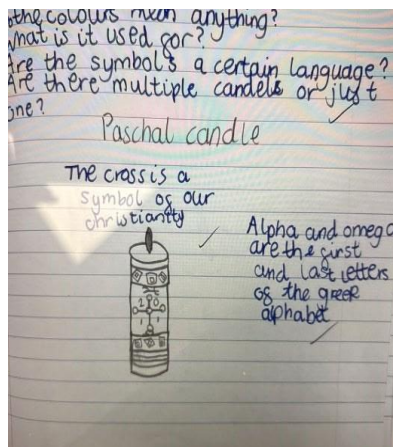 othe colours mean anything?
what is it used for?
Are the symbols a certain language?
Are there multiple candels or just
one?
Paschal candle
The cross is a
symbol of our
christianity
Alpha and omega
are the first
and last letters
of the greek
alphabet
2 0
1 1